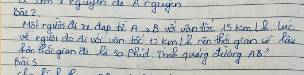 x nguyên để B nguyên
bài 2.
Một người đi xe đạp từ A → B với vận tốc 15 km/h. Lúc
về người đó đi với vận tốc 12 km/h nên thời gian về lâu
hơn thời gian đi là 30 phút. Tính quãng đường AB?
bài 3